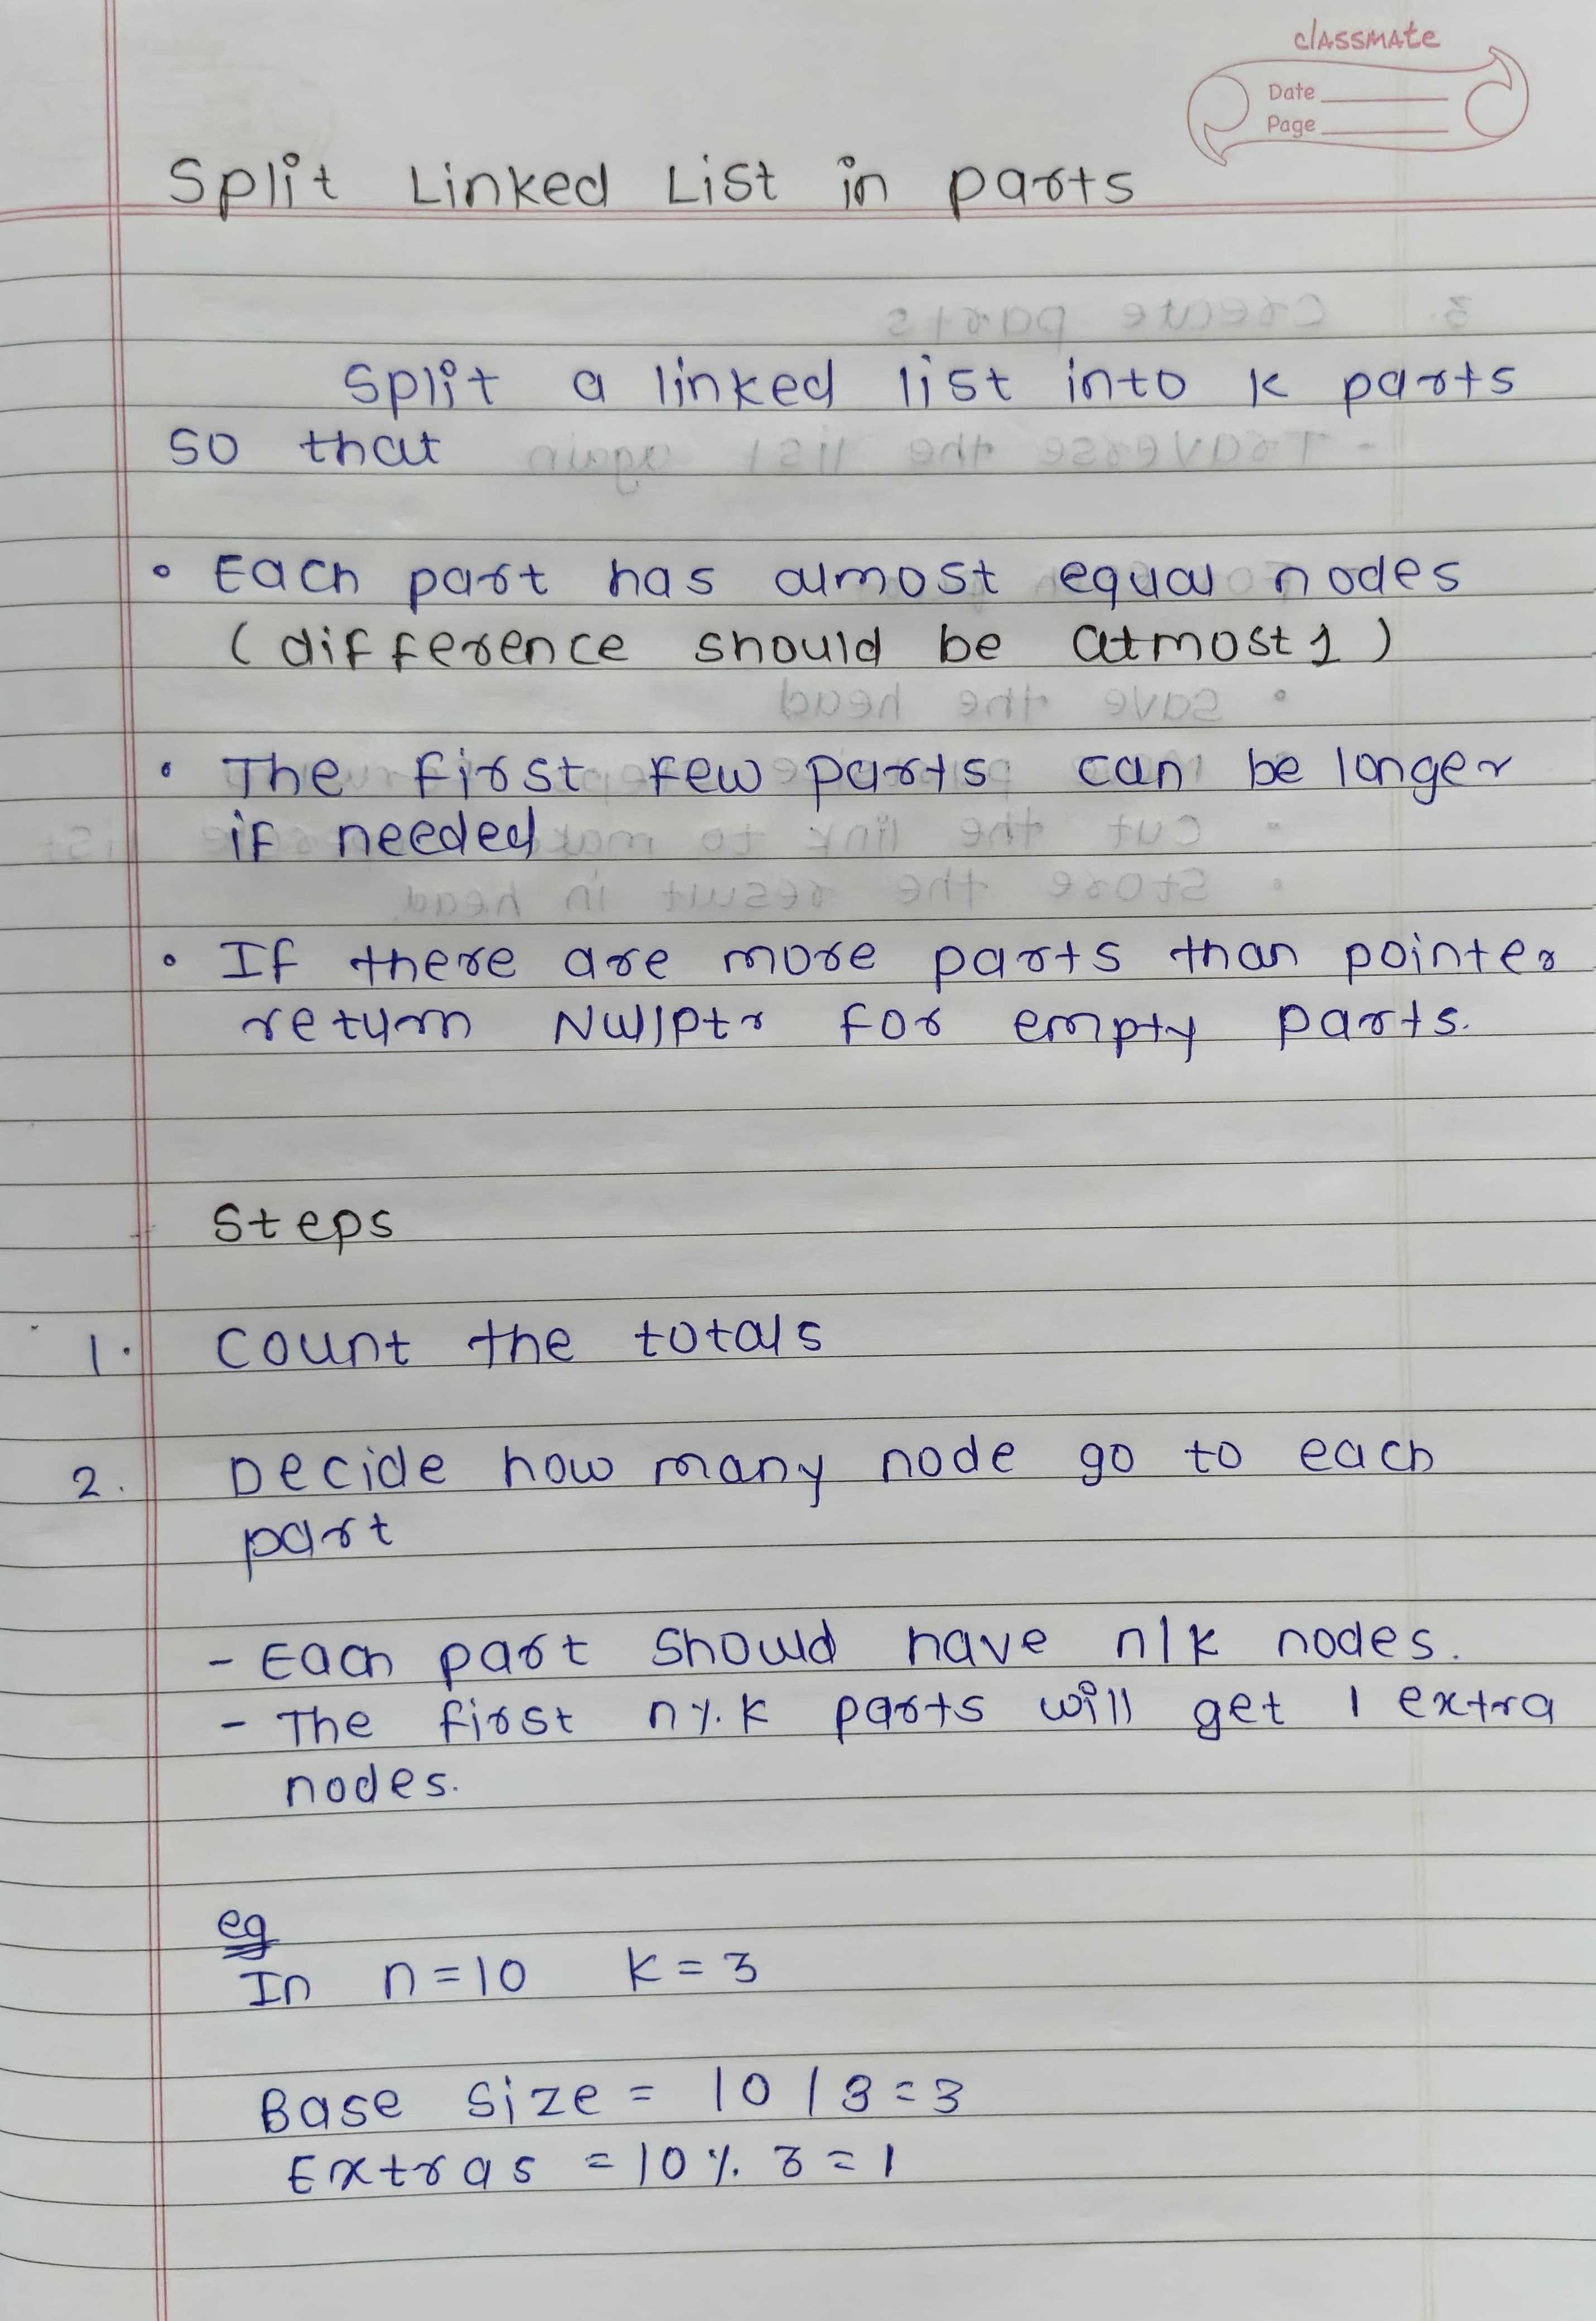 classmate
Date
Page
Split Linked List in parts
Split a linked list into k parts
so that
• Each part has almost equal nodes
(difference should be atmost 1)
• The first few parts can be longer
if needed
• If there are more parts than pointer
return Nullptr for empty parts.
Steps
1. Count the totals
2. Decide how many node go to each
part
- Each part should have n/k nodes.
- The first n%k parts will get 1 extra
nodes.
eg
In n=10 k=3
Base size = 10/3=3
Extras = 10% 3=1